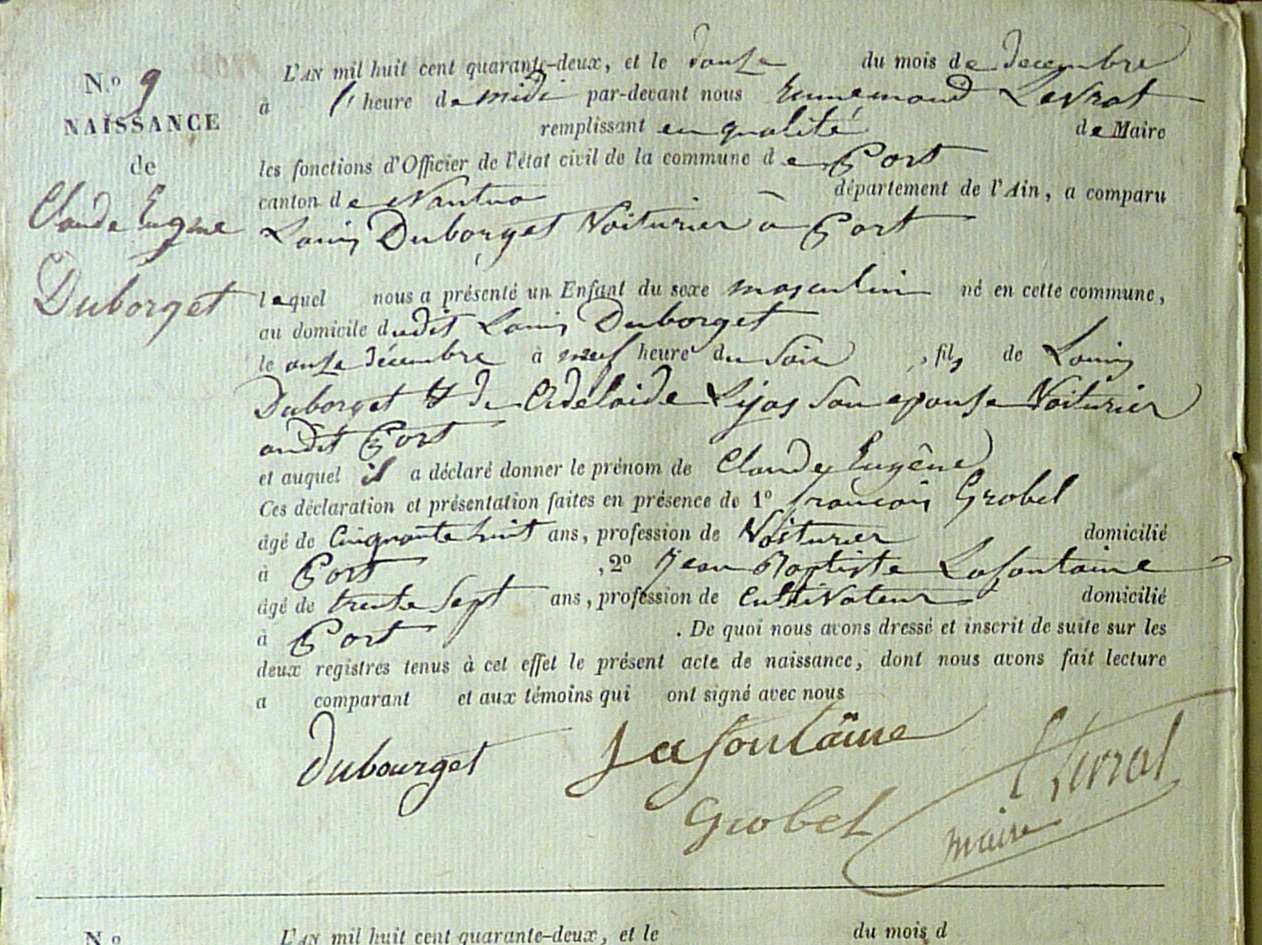 N.o 9
NAISSANCE
de
Claude Eugene
Duborget
L'AN mil huit cent quarante-deux, et le douze du mois de decembre
à l' heure de midi par-devant nous Ennemond Levrat
remplissant en qualité de Maire
les fonctions d'Officier de l'état civil de la commune de Port
canton de Nantua département de l'Ain, a comparu
Louis Duborget Voiturier à Port
lequel nous a présenté un Enfant du sexe masculin né en cette commune,
au domicile dudit Louis Duborget
le onze décembre à neuf heure du Soir, fils de Louis
Duborget et de Adelaide Lijas Son epouse Voiturier
audit Port
et auquel il a déclaré donner le prénom de Claude Eugêne
Ces déclaration et présentation faites en présence de 1o françois Grobel
âgé de Cinquante huit ans, profession de Voiturier domicilié
à Port, 2o Jean Baptiste Lafontaine
âgé de trente Sept ans, profession de Cultivateur domicilié
à Port. De quoi nous avons dressé et inscrit de suite sur les
deux registres tenus à cet effet le présent acte de naissance, dont nous avons fait lecture
a comparant et aux témoins qui ont signé avec nous
Dubourget Lafontaine Levrat
Grobel maire
N.o L'AN mil huit cent quarante-deux, et le du mois d